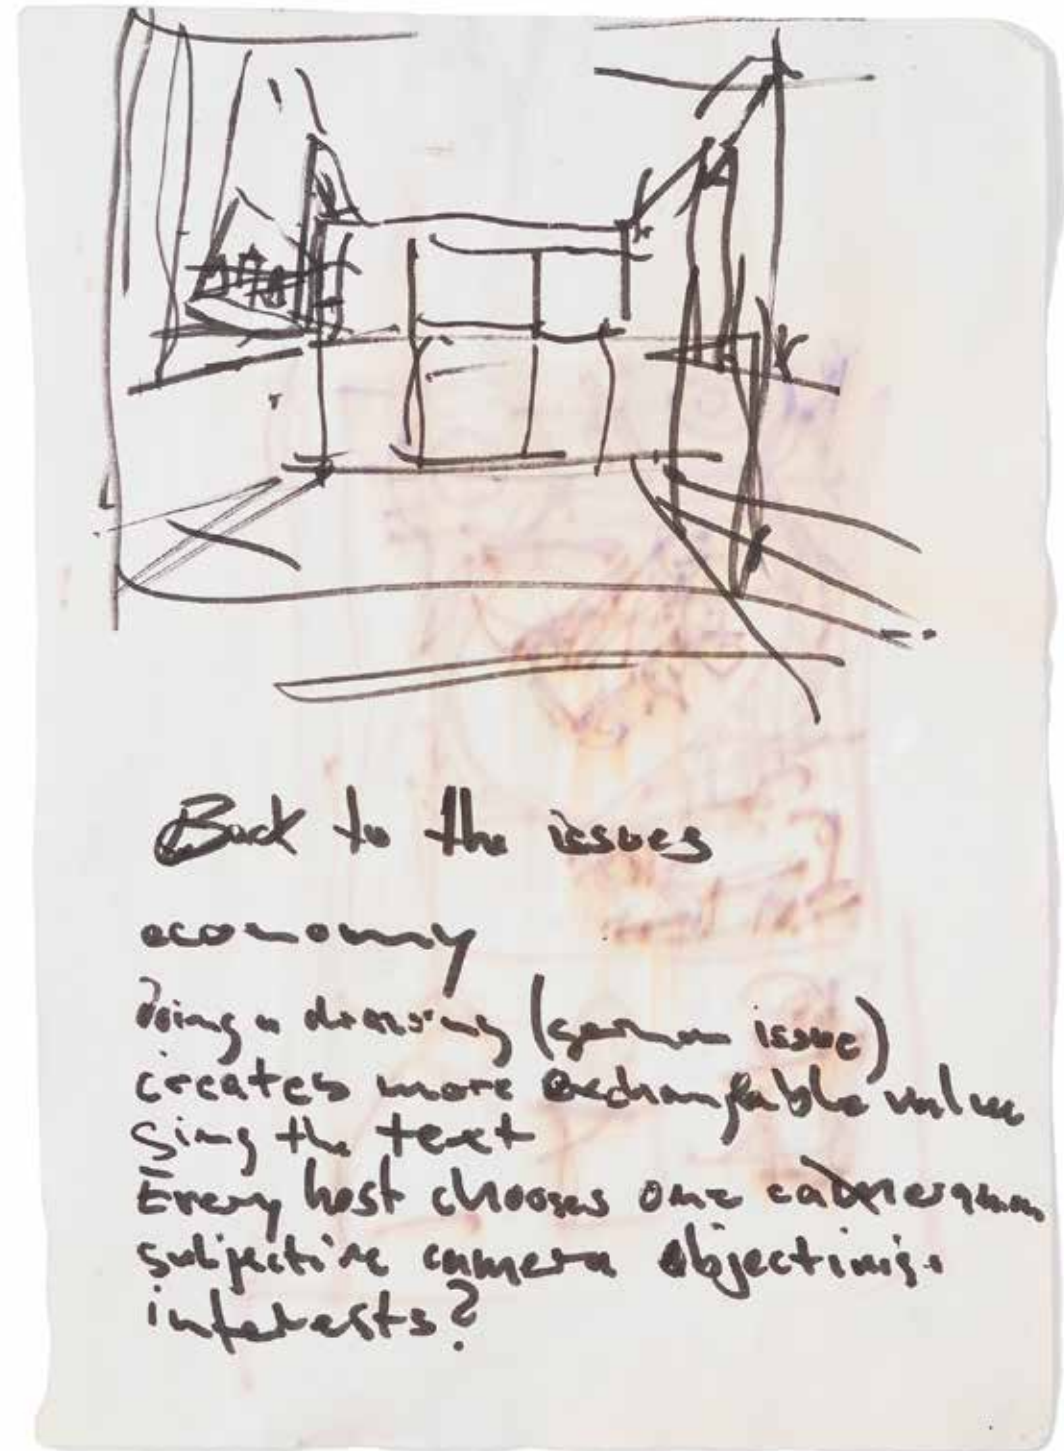 Back to the issues
economy
Doing a drawing (german issue)
creates more exchangable value
Sing the text
Every host chooses one cameraman
subjective camera objectivis.
interests?